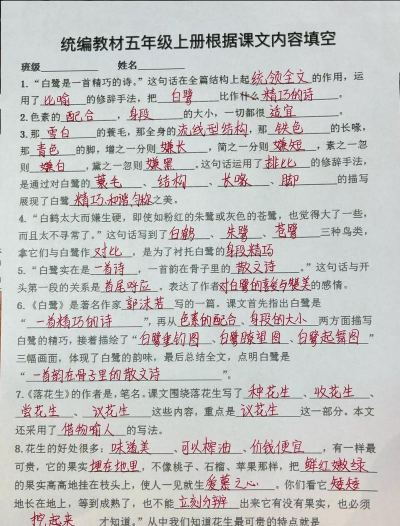 统编教材五年级上册根据课文内容填空
班级 姓名
1.“白鹭是一首精巧的诗。”这句话在全篇结构上起统领全文的作用，运
用了比喻的修辞手法，把白鹭比作什么精巧的诗。
2.色素的配合，身段的大小，一切都很适宜。
3.那雪白的蓑毛，那全身的流线型结构，那铁色的长喙，
那青色的脚，增之一分则嫌长，简之一分则嫌短，素之一忽
则嫌白，黛之一忽则嫌黑。这句话运用了排比的修辞手法，
是通过对白鹭的蓑毛、结构、长喙、脚的描写
展现了白鹭精巧、和谐匀称之美。
4.“白鹤太大而嫌生硬，即使如粉红的朱鹭或灰色的苍鹭，也觉得大了一些，
而且太不寻常了。”这句话写到了白鹤、朱鹭、苍鹭三种鸟类，
拿它们与白鹭作对比，是为了衬托白鹭的身段精巧
5.“白鹭实在是一首诗，一首韵在骨子里的散文诗。”这句话与开
头第一段的关系是首尾呼应，表达了作者对白鹭的喜爱与赞美的感情。
6.《白鹭》是著名作家郭沫若写的一篇。课文首先指出白鹭是
“一首精巧的诗”，再从色素的配合、身段的大小两方面描写
白鹭的精巧，接着描绘了“白鹭垂钓图、白鹭瞭望图、白鹭起舞图”
三幅画面，体现了白鹭的韵味，最后总结全文，点明白鹭是
“一首韵在骨子里的散文诗”。
7.《落花生》的作者是，笔名，课文围绕落花生写了种花生、收花生、
尝花生、议花生这些内容，重点是议花生这一部分。本文
还采用了借物喻人的写法。
8.花生的好处很多：味道美、可以榨油、价钱便宜，有一样最
可贵，它的果实埋在地里，不像桃子、石榴、苹果那样，把鲜红嫩绿
的果实高高地挂在枝头上，使人一见就生爱慕之心，你们看它矮矮
地长在地上，等到成熟了，也不能立刻分辨出来它有没有果实，也必须
挖起来才知道。”从中我们知道花生最可贵的特点就是